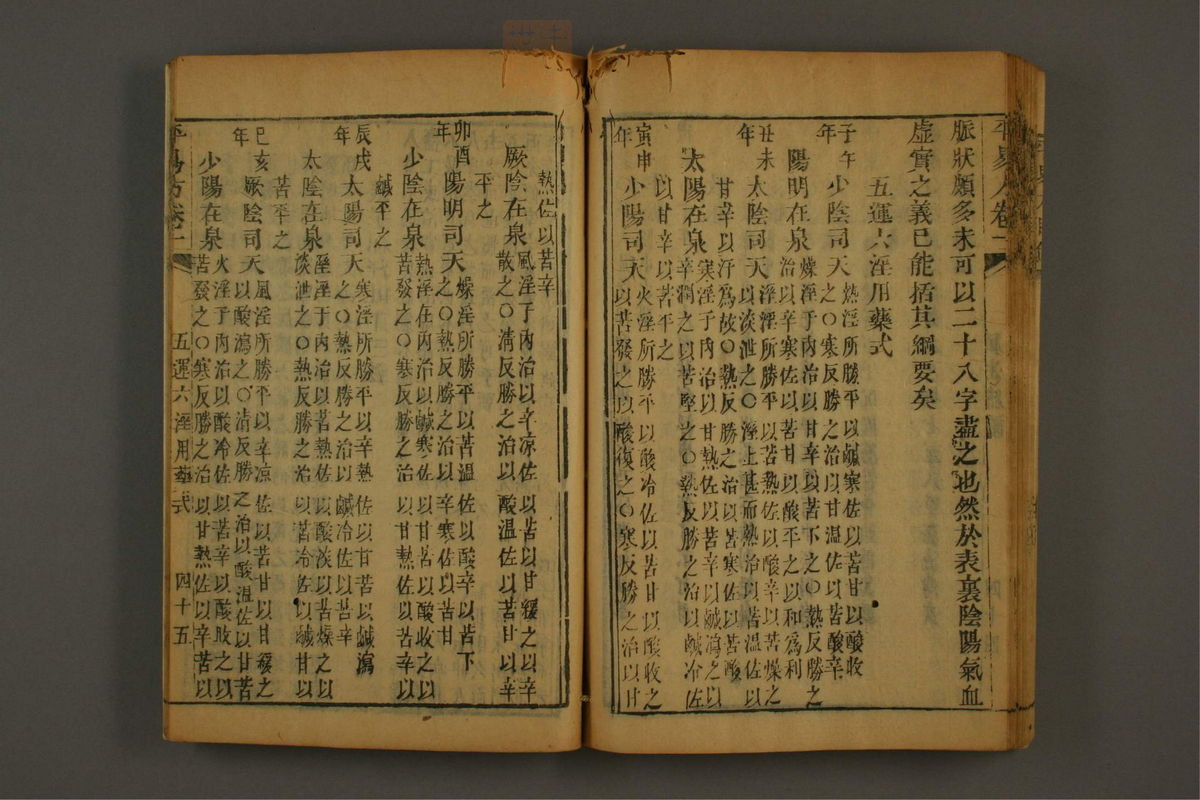 平易方卷一
脈狀頗多未可以二十八字盡之也然於表裏陰陽氣血
虛實之義已能括其綱要矣
五運六淫用藥式
子午年
少陰司天
熱淫所勝平以鹹寒佐以苦甘以酸收
之〇寒反勝之治以甘溫佐以苦酸辛
陽明在泉
燥淫于內治以甘辛以苦下之〇熱反勝之
治以辛寒佐以苦甘以酸平之以和為利
丑未年
太陰司天
溼淫所勝平以苦熱佐以酸辛以苦燥之
以淡泄之〇溼上甚而熱治以苦溫佐以
甘辛以汗爲故〇熱反勝之治以苦寒佐以苦酸
太陽在泉
寒淫于內治以甘熱佐以苦辛以鹹瀉之以
辛潤之以苦堅之〇熱反勝之治以鹹冷佐
以甘辛以苦平之
寅申年
少陽司天
火淫所勝平以酸冷佐以苦甘以酸收之
以苦發之以酸復之〇寒反勝之治以甘
熱佐以苦辛
厥陰在泉
風淫于內治以辛凉佐以苦以甘緩之以辛
散之〇清反勝之治以酸温佐以苦甘以辛
平之
卯酉年
陽明司天
燥淫所勝平以苦溫佐以酸辛以苦下
之〇熱反勝之治以辛寒佐以苦甘
少陰在泉
熱淫在內治以鹹寒佐以甘苦以酸收之以
苦發之〇寒反勝之治以甘熱佐以苦辛以
鹹平之
辰戌年
太陽司天
寒淫所勝平以辛熱佐以甘苦以鹹瀉
之〇熱反勝之治以鹹冷佐以苦辛
太陰在泉
溼淫于內治以苦熱佐以酸淡以苦燥之以
淡泄之〇熱反勝之治以苦冷佐以鹹甘以
苦平之
巳亥年
厥陰司天
風淫所勝平以辛凉佐以苦甘以甘緩之
以酸瀉之〇清反勝之治以酸溫佐以甘苦
少陽在泉
火淫于內治以酸冷佐以苦辛以酸收之以
苦發之〇寒反勝之治以甘熱佐以辛苦以
平易方卷一
五運六淫用藥式
四十五